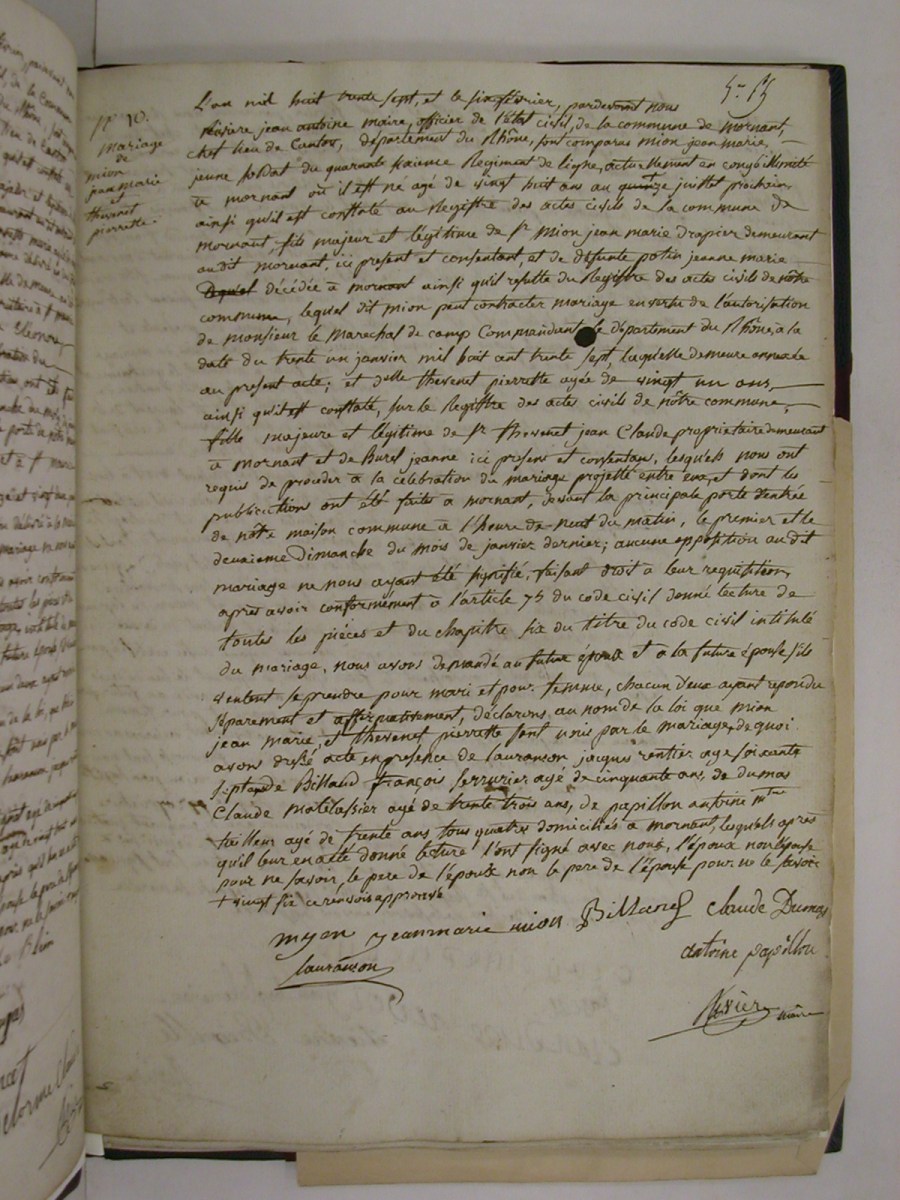 N° 10.
mariage
de
mion
jean marie
et
thevenet
pierrette.
L'an mil huit trente sept, et le six février, pardevant nous
jean antoine maire, officier de l'état civil, de la commune de mornant,
chef lieu de Canton, département du Rhône, sont comparus mion jean marie,
jeune soldat du quarante Regiment de ligne, actuellement en congé illimité
a mornant où il est né agé de vingt huit ans au quinze juillet prochain
ainsi qu'il est constaté au Registre des actes civils de la commune de
mornant, fils majeur et légitime de Sr mion jean marie drapier demeurant
audit mornant, ici present et consentant et de défunte potin jeanne marie
Lequel décédée à mornant ainsi qu'il resulte du Registre des actes civils de nôtre
commune, lequel dit mion peut contracter mariage en vertu de l'autorisation
de monsieur le marechal de camp Commandant le département du Rhône, a la
date du trente un janvier mil huit cent trente sept, laquelle demeure annexée
au present acte; et delle thevenet pierrette agée de vingt un ans,
ainsi qu'il est constaté, sur le Registre des actes civils de nôtre commune,
fille majeure et légitime de Sr thevenet jean Claude propriétaire demeurant
à mornant et de Burel jeanne ici présens et consentans, lesquels nous ont
requis de proceder à la célébration du mariage projetté entre eux, et dont les
publications ont été faites a mornant, devant la principale porte d'entrée
de nôtre maison commune à l'heure de neuf du matin, le premier et le
deuxieme Dimanche du mois de janvier dernier; aucune opposition au dit
mariage ne nous ayant été signifié, faisant droit a leur requisition,
après avoir conformément à l'article 75 du code civil donné lecture de
toutes les pièces et du chapitre six du titre du code civil intitulé
du mariage, nous avons demandé au futur époux et a la future épouse s'ils
veulent se prendre pour mari et pour femme, chacun d'eux ayant repondu
séparement et affirmativement, déclarons au nom de la loi que mion
jean marie, et thevenet pierrette sont unis par le mariage, de quoi
avons dressé acte en presence de Lauranson jacques rentier age soixante
sept ans de Billaud françois serrurier agé de cinquante ans, de dumas
Claude matelassier agé de trente trois ans, de papillon antoine
tailleur agé de trente ans, tous quatre domiciliés a mornant, lesquels après
qu'il leur en a été donné lecture l'ont signé avec nous, l'époux non l'épouse
pour ne savoir, le pere de l'époux non le pere de l'épouse pour ne le savoir
+ vingt six ce renvois approuvé
myon jeanmarie mion Billaud Claude Dumas
antoine papillon
lauranson
maire